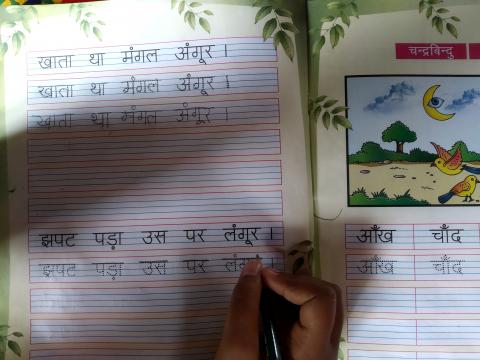 खाता था मंगल अंगूर ।
खाता था मंगल अंगूर ।
खाता था मंगल अंगूर ।
झपट पड़ा उस पर लंगूर ।
झपट पड़ा उस पर
चन्द्रबिन्दु
आँख चाँद
आँख चाँद